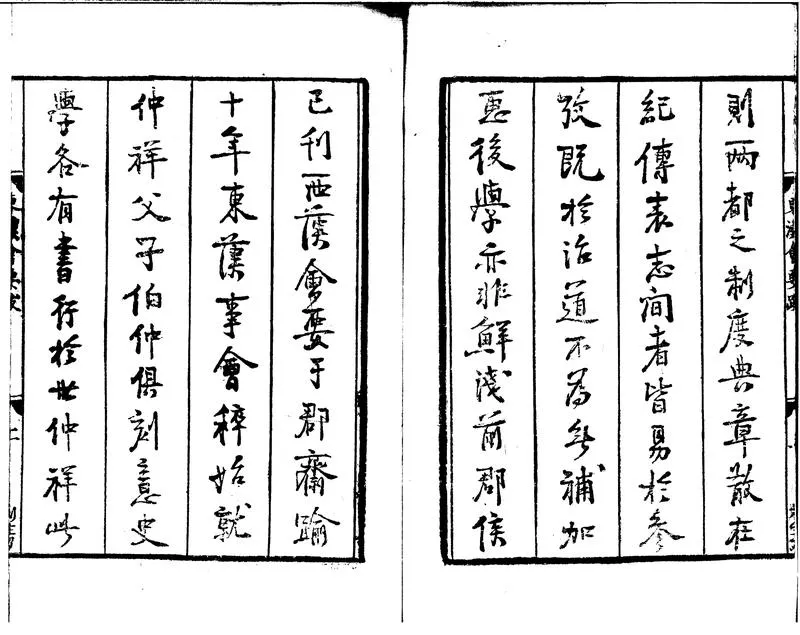 則兩都之制度典章散在
紀傳表志間者皆易於參
攷既於治道不為無補加
惠後學亦非鮮淺前郡侯
已刊西漢會要于郡齋踰
十年東漢事會稡始就
仲祥父子伯仲俱刻意史
學各有書行於世仲祥此
東漢會要跋